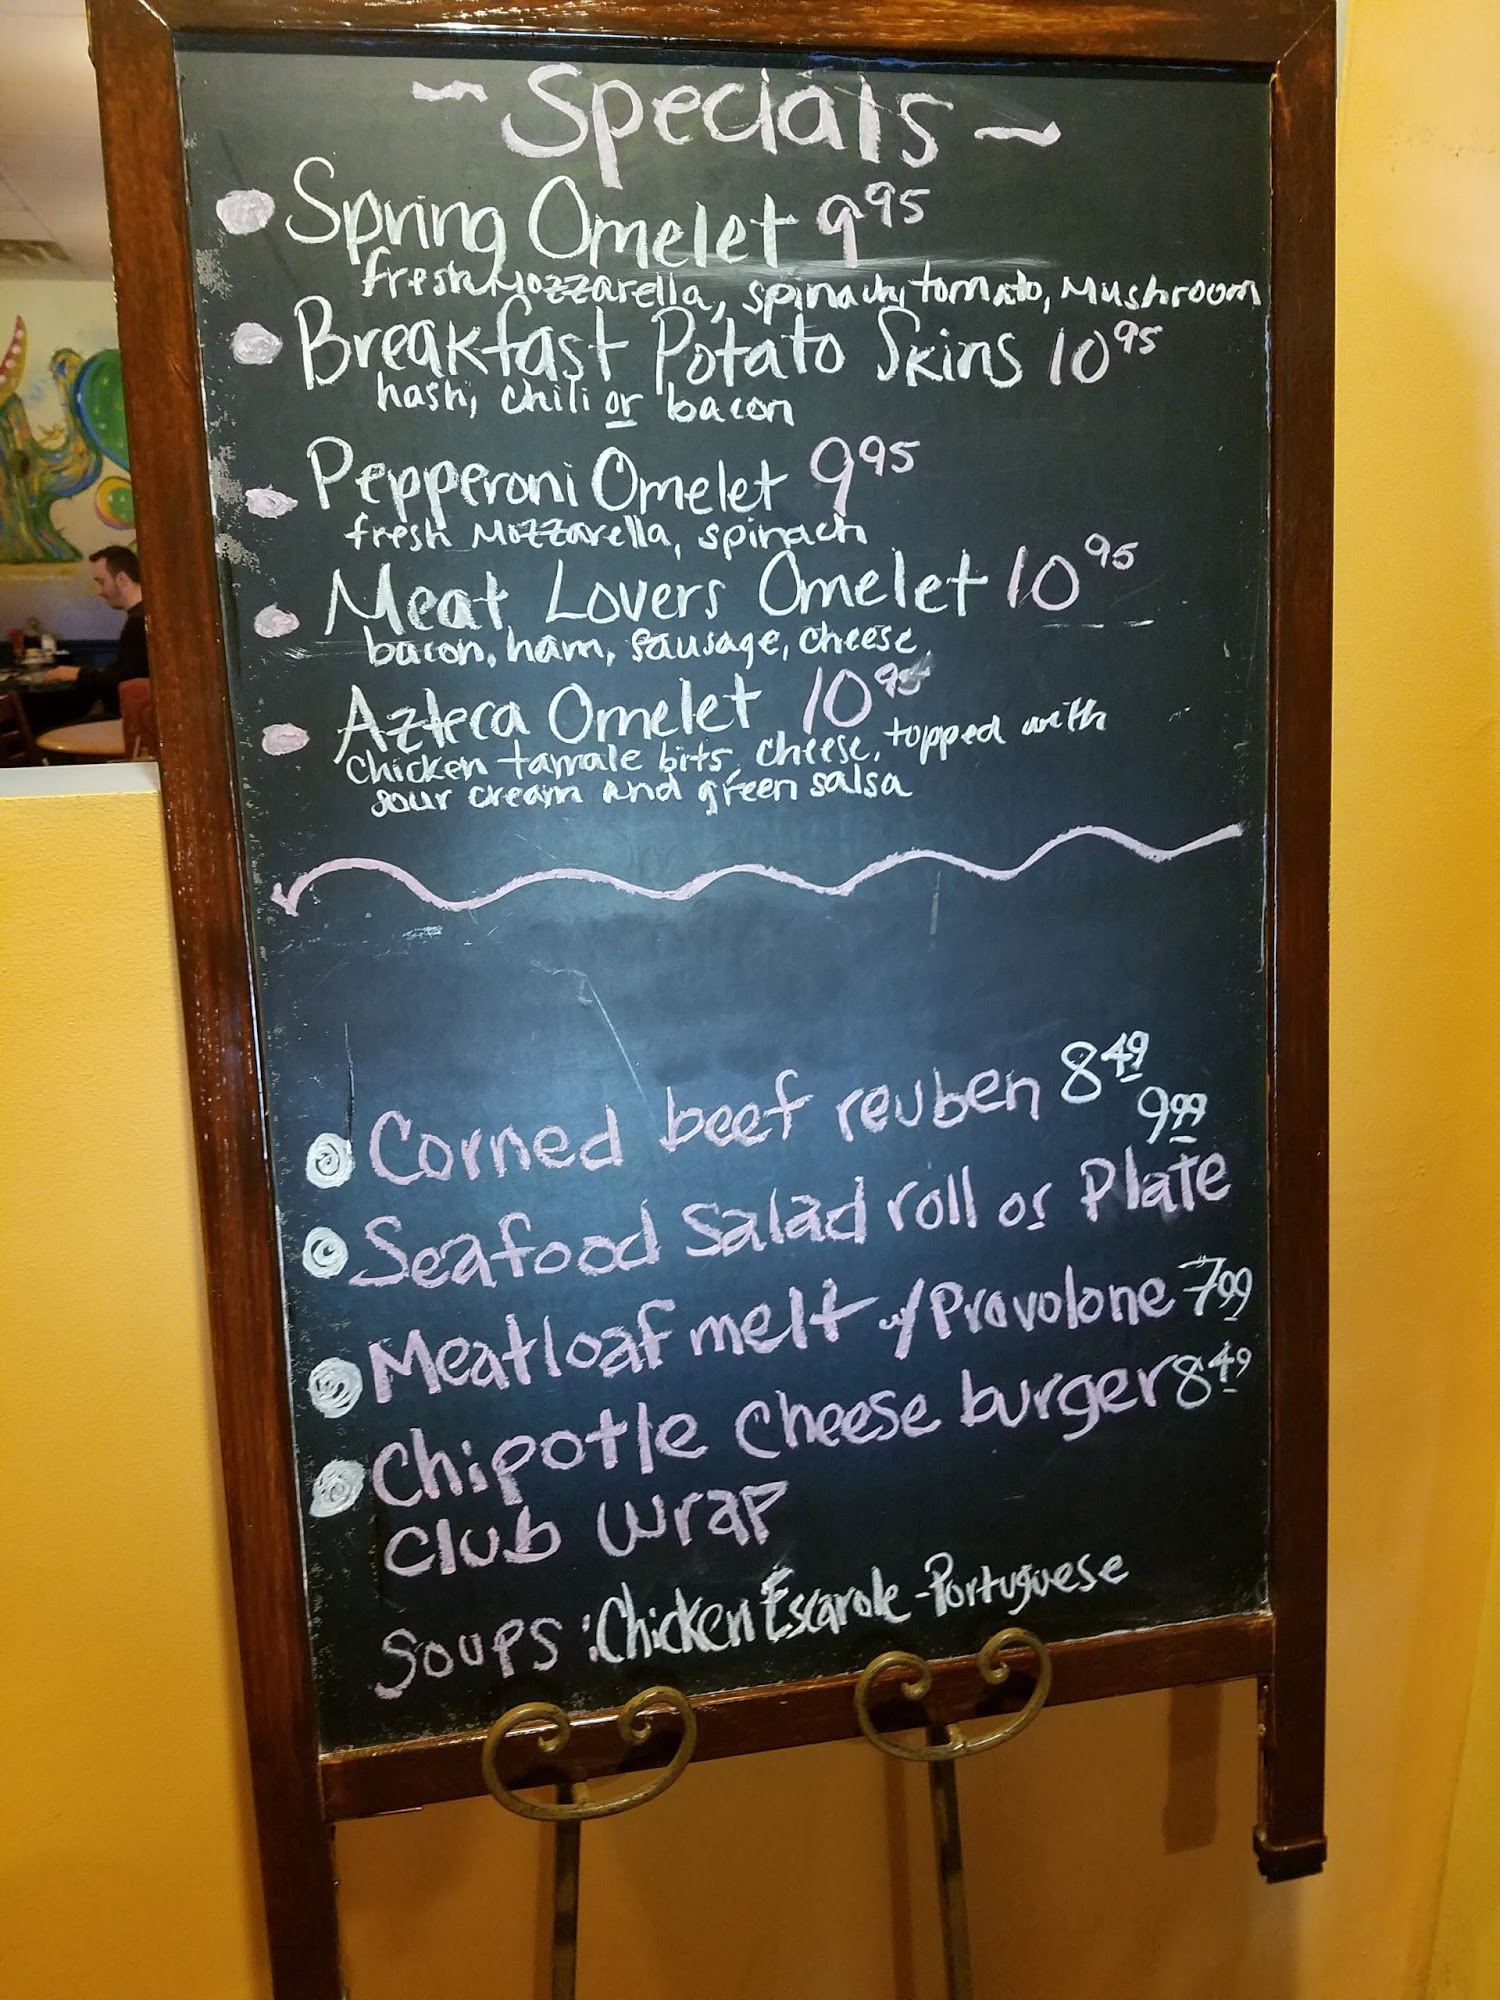 ~ Specials ~
Spring Omelet 9.95
fresh Mozzarella, spinach, tomato, Mushroom
Breakfast Potato Skins 10.95
hash, chili or bacon
Pepperoni Omelet 9.95
fresh Mozzarella, spinach
Meat Lovers Omelet 10.95
bacon, ham, sausage, cheese
Azteca Omelet 10.95
Chicken tamale bits, cheese, topped with
sour cream and green salsa
Corned beef reuben 8.49
9.99
Seafood Salad roll or Plate
Meatloaf melt w/Provolone 7.99
Chipotle Cheese burger 8.49
Club Wrap
Soups: Chicken Escarole - Portuguese